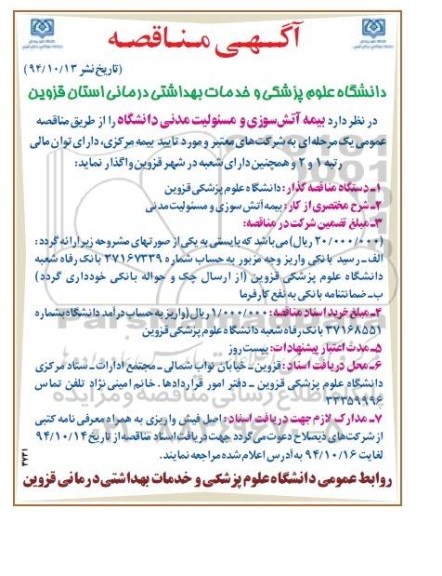 آگهی مناقصه
(تاریخ نشر ۹۴/۱۰/۱۳)
دانشگاه علوم پزشکی و خدمات بهداشتی درمانی استان قزوین
در نظر دارد بیمه آتش‌سوزی و مسئولیت مدنی دانشگاه را از طریق مناقصه
عمومی یک مرحله‌ای به شرکت‌های معتبر و مورد تایید بیمه مرکزی، دارای توان مالی
رتبه ۱ و ۲ و همچنین دارای شعبه در شهر قزوین واگذار نماید:
۱ـ دستگاه مناقصه گذار: دانشگاه علوم پزشکی قزوین
۲ـ شرح مختصری از کار: بیمه آتش سوزی و مسئولیت مدنی
۳ـ مبلغ تضمین شرکت در مناقصه:
(۲۰/۰۰۰/۰۰۰ ریال) می‌باشد که بایستی به یکی از صورتهای مشروحه زیر ارائه گردد:
الف ـ رسید بانکی واریز وجه مزبور به حساب شماره ۳۷۱۶۷۳۳۹ بانک رفاه شعبه
دانشگاه علوم پزشکی قزوین (از ارسال چک و حواله بانکی خودداری گردد)
ب ـ ضمانتنامه بانکی به نفع کارفرما
۴ـ مبلغ خرید اسناد مناقصه: ۱/۰۰۰/۰۰۰ ریال (واریز به حساب درآمد دانشگاه بشماره
۳۷۱۶۸۵۵۱ بانک رفاه شعبه دانشگاه علوم پزشکی قزوین
۵ـ مدت اعتبار پیشنهادات: بیست روز
۶ـ محل دریافت اسناد: قزوین ـ خیابان نواب شمالی ـ مجتمع ادارات ـ ستاد مرکزی
دانشگاه علوم پزشکی قزوین ـ دفتر امور قراردادها. خانم امینی نژاد تلفن تماس
۳۳۳۵۹۹۹۶
۷ـ مدارک لازم جهت دریافت اسناد: اصل فیش واریزی به همراه معرفی نامه کتبی
از شرکت‌های ذیصلاح دعوت می‌گردد جهت دریافت اسناد مناقصه از تاریخ ۹۴/۱۰/۱۴
لغایت ۹۴/۱۰/۱۶ به آدرس اعلام شده مراجعه نمایند.
روابط عمومی دانشگاه علوم پزشکی و خدمات بهداشتی درمانی قزوین